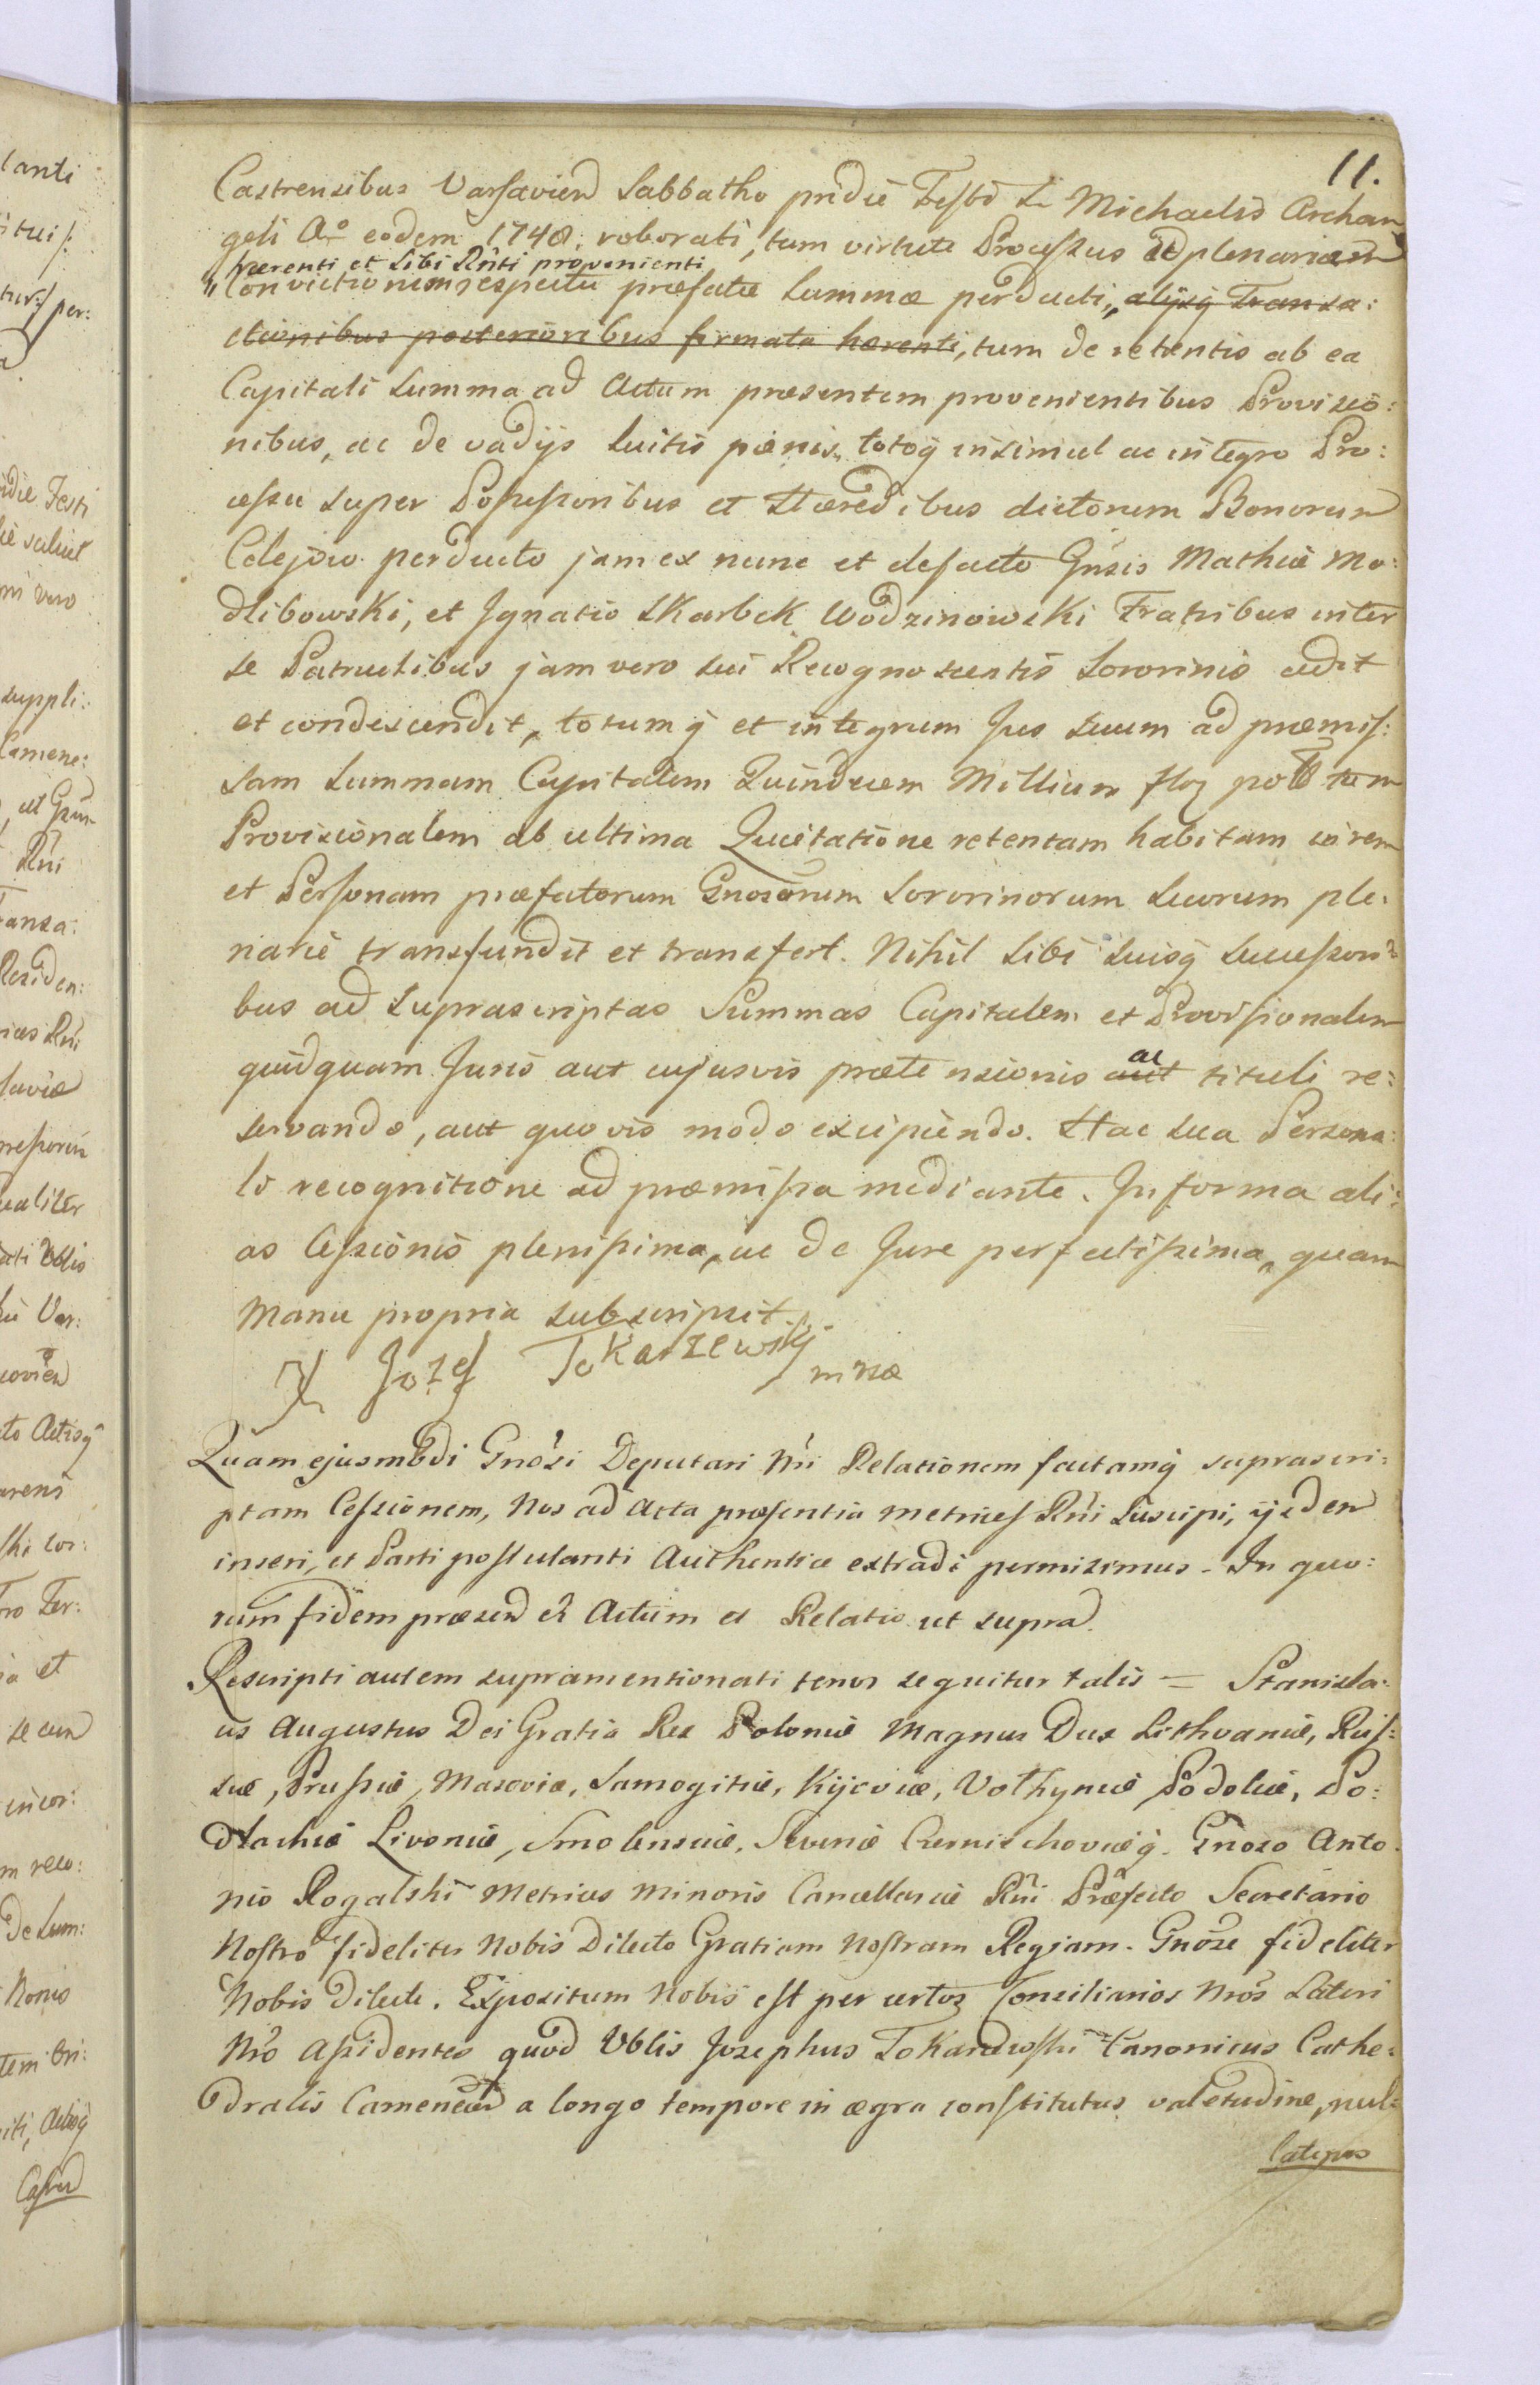 11.
Castrensibus Varsavien Sabbatho pridie Festi S. Michaelis Archan
geli Ao eodem 1748. roborati, tum virtute Processus ad plenariam
hærenti et Sibi Rnti provenienti
"Convictionem respectu præfatæ Summæ perducti,, alijsq Transa:
ctionibus posterioribus firmata hærenti, tum de retentis ab ea
Capitali Summa ad Actum præsentem provenientibus Provisio:
nibus, ac de vadijs luitis pænis, totoq insimul ac integro Pro:
cessu super Possessoribus et Hæredibus dictorum Bonorum
Celejow perducto jam ex nunc et defacto Gnsis Mathiæ Mo:
dlibowski, et Ignatio Skarbek Wodzinowski Fratribus inter
se Patruelibus jam vero sui Recognoscentis Sororinis cedit
et condescendit, totumq et integrum Jus suum ad præmis:
sam Summam Capitalem Quindecem Millium flor poll tum
Provisionalem ab ultima Quietatione retentam habitam in rem
et Personam præfatorum Gnosorum Sororinorum suorum ple:
narie transfundit et transfert. Nihil Sibi Suisq Successori:
bus ad Suprascriptas Summas Capitalem et Provisionalem
quidquam Juris aut cujusvis prætensionis aut ac tituli re:
servando, aut quovis modo excipiendo. Hac sua Persona:
li recognitione ad præmissa mediante. In forma ali:
as Cessionis plenissima, ac de Jure perfectissima, quam
Manu propria subscripsit.
X Jozef Tokarzewskj
mrsæ
Quam ejusmodi Gnosi Deputari Nri Relationem factamq suprascri:
ptam Cessionem, Nos ad Acta præsentia Metrices Rni Suscipi, ijsdem
inseri, et Parti postulanti Authentice extradi permisimus. In quo:
rum fidem præsen et Actum et Relatio ut supra.
Rescripti autem supramentionati tenor sequitur talis = Stanisla:
us Augustus Dei Gratia Rex Poloniæ Magnus Dux Lithvaniæ, Rus:
siæ, Prussiæ, Masoviæ, Samogitiæ, Kijoviæ, Volhyniæ Podoliæ, Po:
dlachiæ Livoniæ, Smolensciæ, Severiæ Czernichoviæq. Gnoso Anto:
nio Rogalski Metrices Minoris Cancellariæ Rni Præfecto Secretario
Nostro fideliter Nobis Dilecto Gratiam Nostram Regiam. Gnose fideliter
Nobis Dilecte. Expositum Nobis est per certos Consiliarios Nros Lateri
Nro Assidentes quod Vblis Josephus Tokarzewski Canonicus Cathe:
dralis Camenecen a longo tempore in ægra constitutus valetudine, nul:
latenus